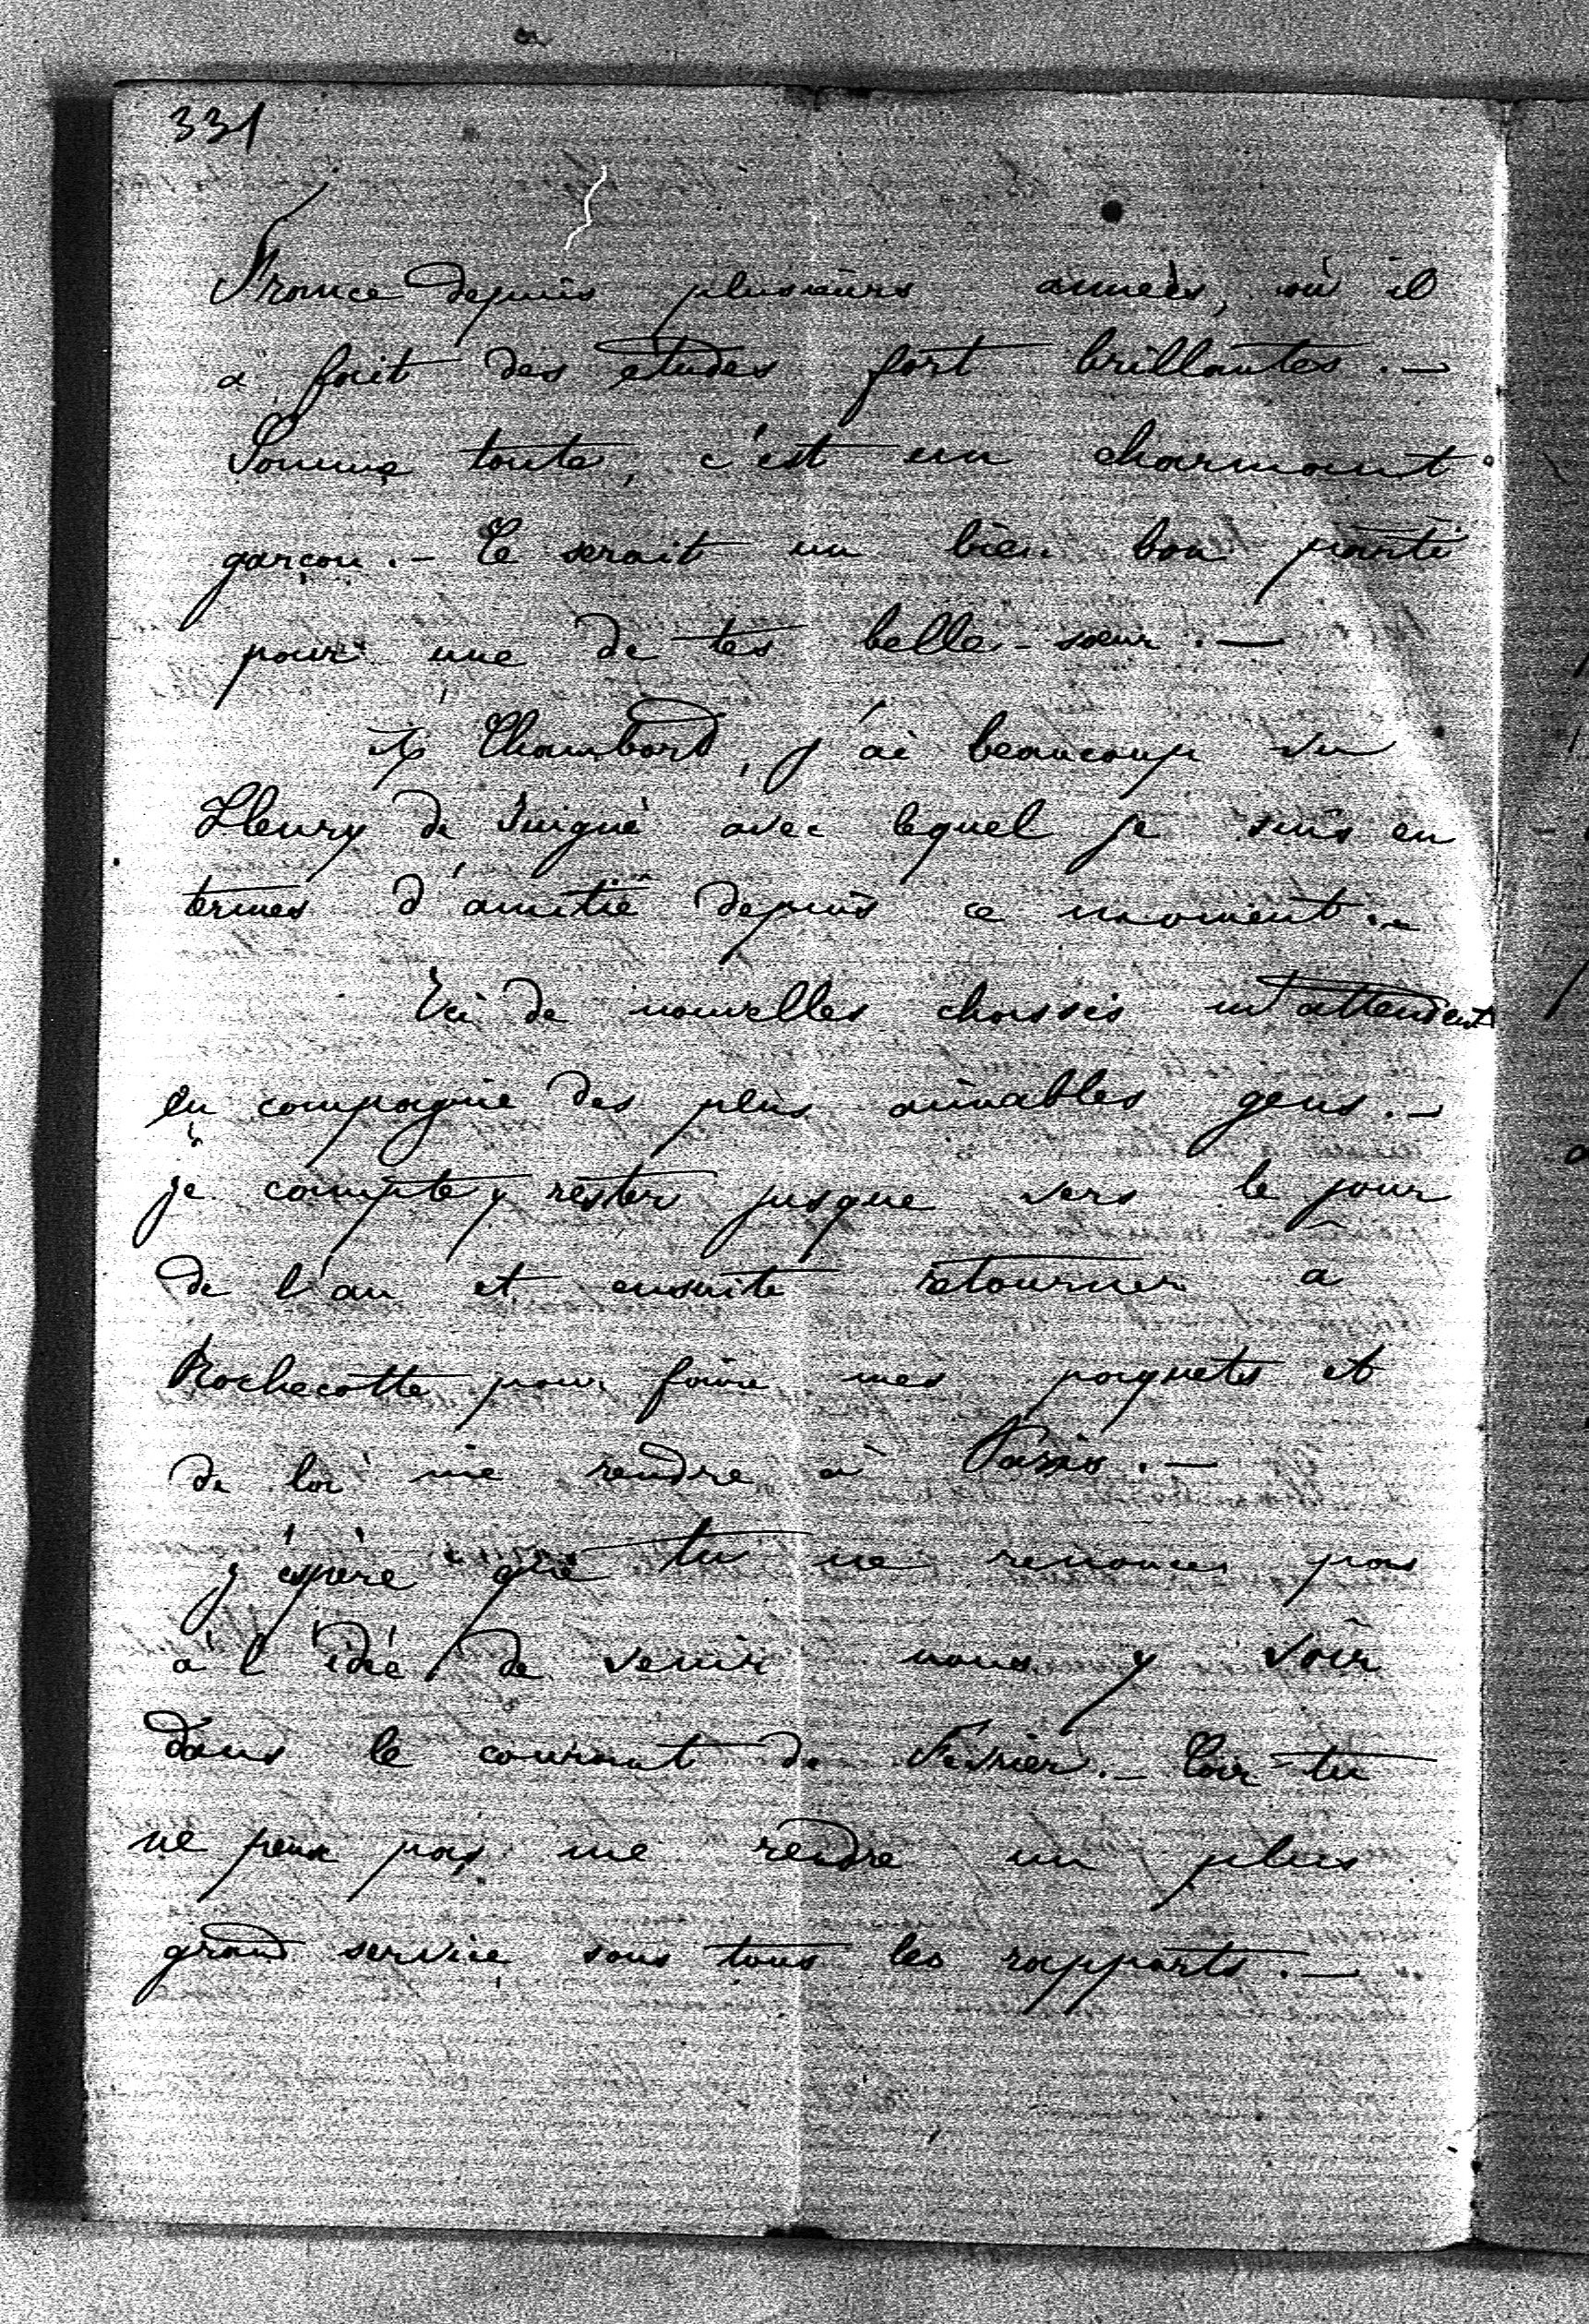 331
France depuis plusieurs années, où il
a fait des études fort brillantes. —
Somme toute, c'est un charmant
garçon. — Ce serait un bien bon parti
pour une de tes belle-sœur. —
A Chambord, j'ai beaucoup vu
Fleury de Vuigné avec lequel je suis en
termes d'amitié depuis ce moment. —
Ici de nouvelles chasses m'attendent
en compagnie des plus aimables gens. —
je compte y rester jusque vers le jour
de l'an et ensuite retourner à
Rochecotte pour faire mes paquets et
de là me rendre à Paris. —
j'espère que tu ne renonces pas
à l'idée de venir nous y voir
dans le courant de Février. — Car tu
ne peux pas me rendre un plus
grand service sous tous les rapports. —